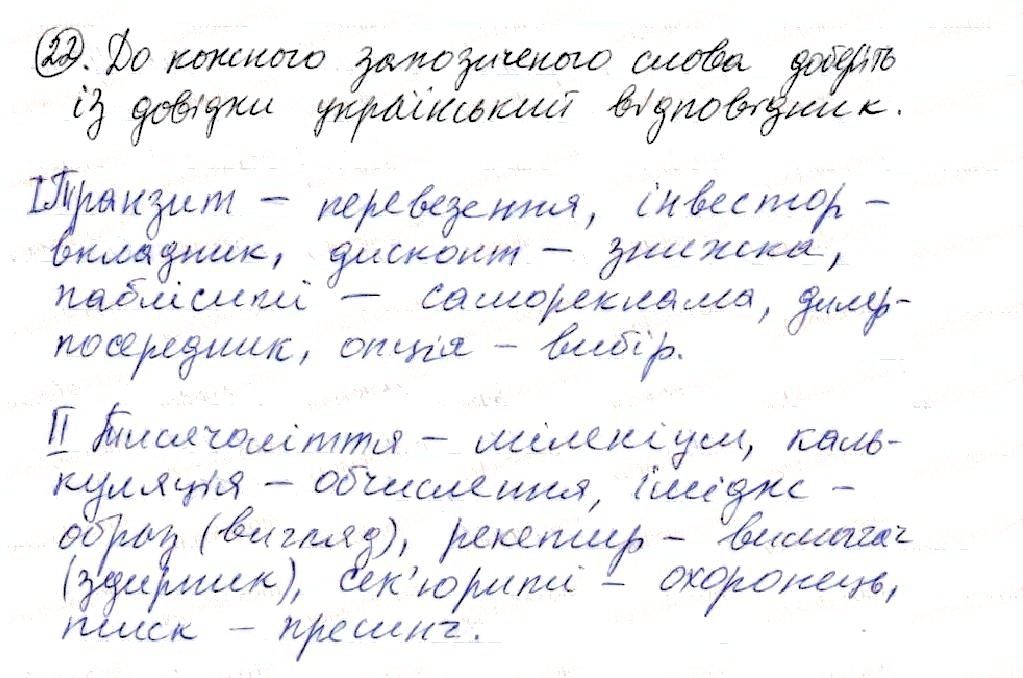 22. До кожного запозиченого слова доберіть
із довідки український відповідник.
І Транзит – перевезення, інвестор –
вкладник, дисконт – знижка,
пабліситі – самореклама, дилер-
посередник, опція – вибір.
ІІ Тисячоліття – міленіум, каль-
куляція – обчислення, імідж –
образ (вигляд), рекетир – вимагач
(здирник), сек'юриті – охоронець,
тиск – пресинг.